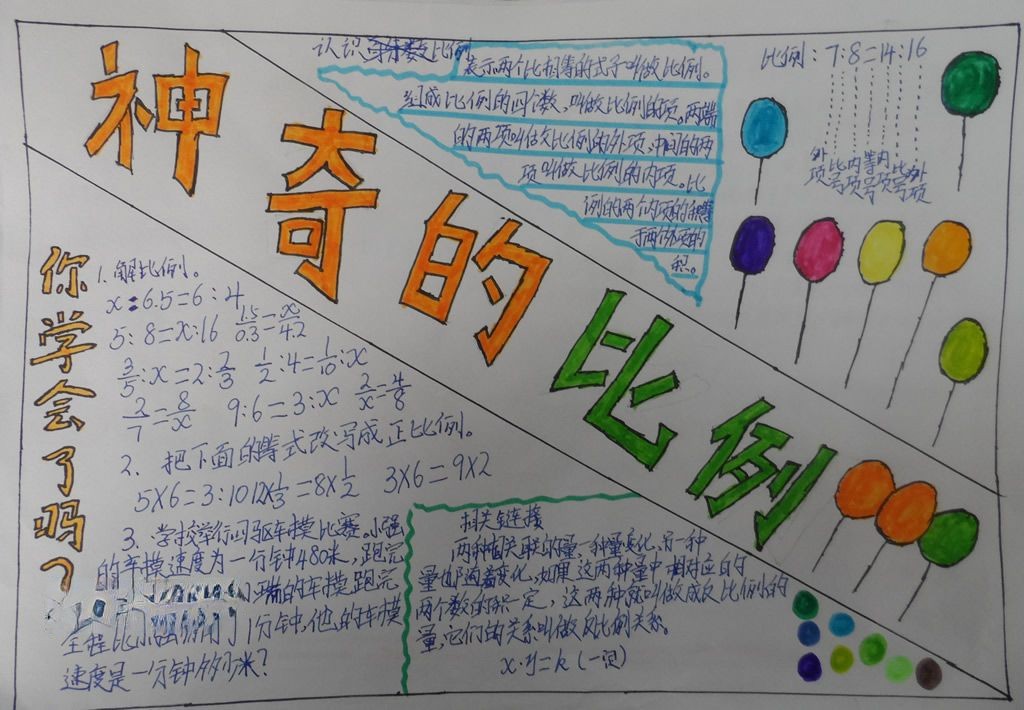 神奇的比例
认识比例
表示两个比相等的式子叫做比例。
组成比例的四个数,叫做比例的项。两端
的两项叫做比例的外项,中间的两
项叫做比例的内项。比
例的两个内项的积等
于两个外项的
积。
比例:7:8=14:16
外项 比号 内项 等号 内项 比号 外项
你学会了吗?
1.解比例。
x:6.5=6:4
5:8=x:16 1.5/0.3=x/4.2
3/5:x=2:2/3 1/2:4=1/10:x
2/7=8/x 9:6=3:x 2/x=4/8
2、把下面的等式改写成正比例。
5×6=3:10 12×1/3=8×1/2 3×6=9×2
3、学校举行四驱车模比赛。小强
的车模速度为一分钟480米,跑完
瑞的车模跑完
全程比小强 用了1分钟,他的车模
速度是一分钟多少米?
相关链接
两种相关联的量,一种量变化,另一种
量也随着变化,如果这两种量中相对应的
两个数的积一定,这两种就叫做成反比例的
量,它们的关系叫做反比例关系。
x·y=k(一定)